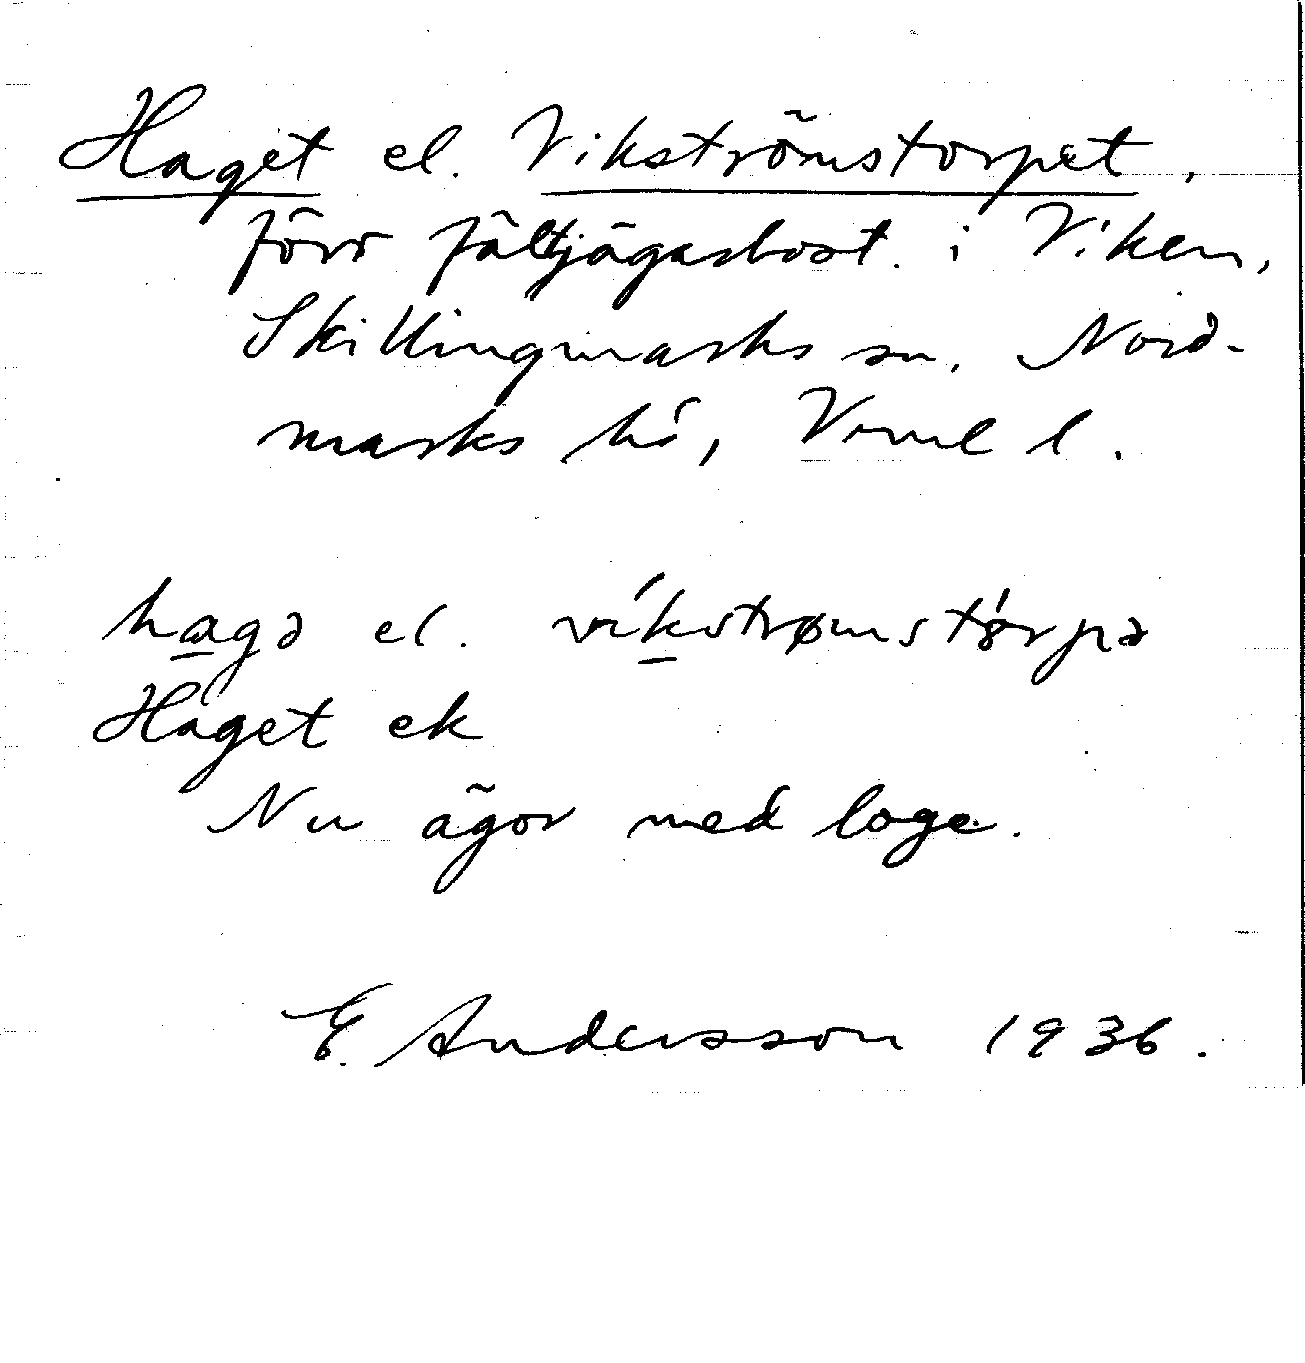 Haget el. Vikströmstorpet,
förr fältjägarbost. i Viken,
Skillingmarks sn, Nord-
marks hd, Verml l.
hagə el. víkstrømstǿrpə
Haget ek
Nu ägor med loge.
E. Andersson 1936.